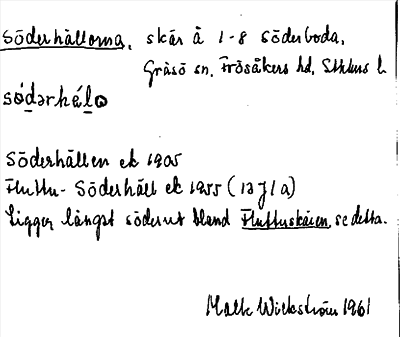 Söderhällorna, skär å 1-8 Söderboda,
Gräsö sn, Frösåkers hd, Sthlms l.
södərhälo
Söderhällen ek 1905
Fluttu-Söderhäll ek 1955 (12 J 1 a)
Ligger längst söderut bland Fluttuskären, se detta.
Malte Wickström 1961